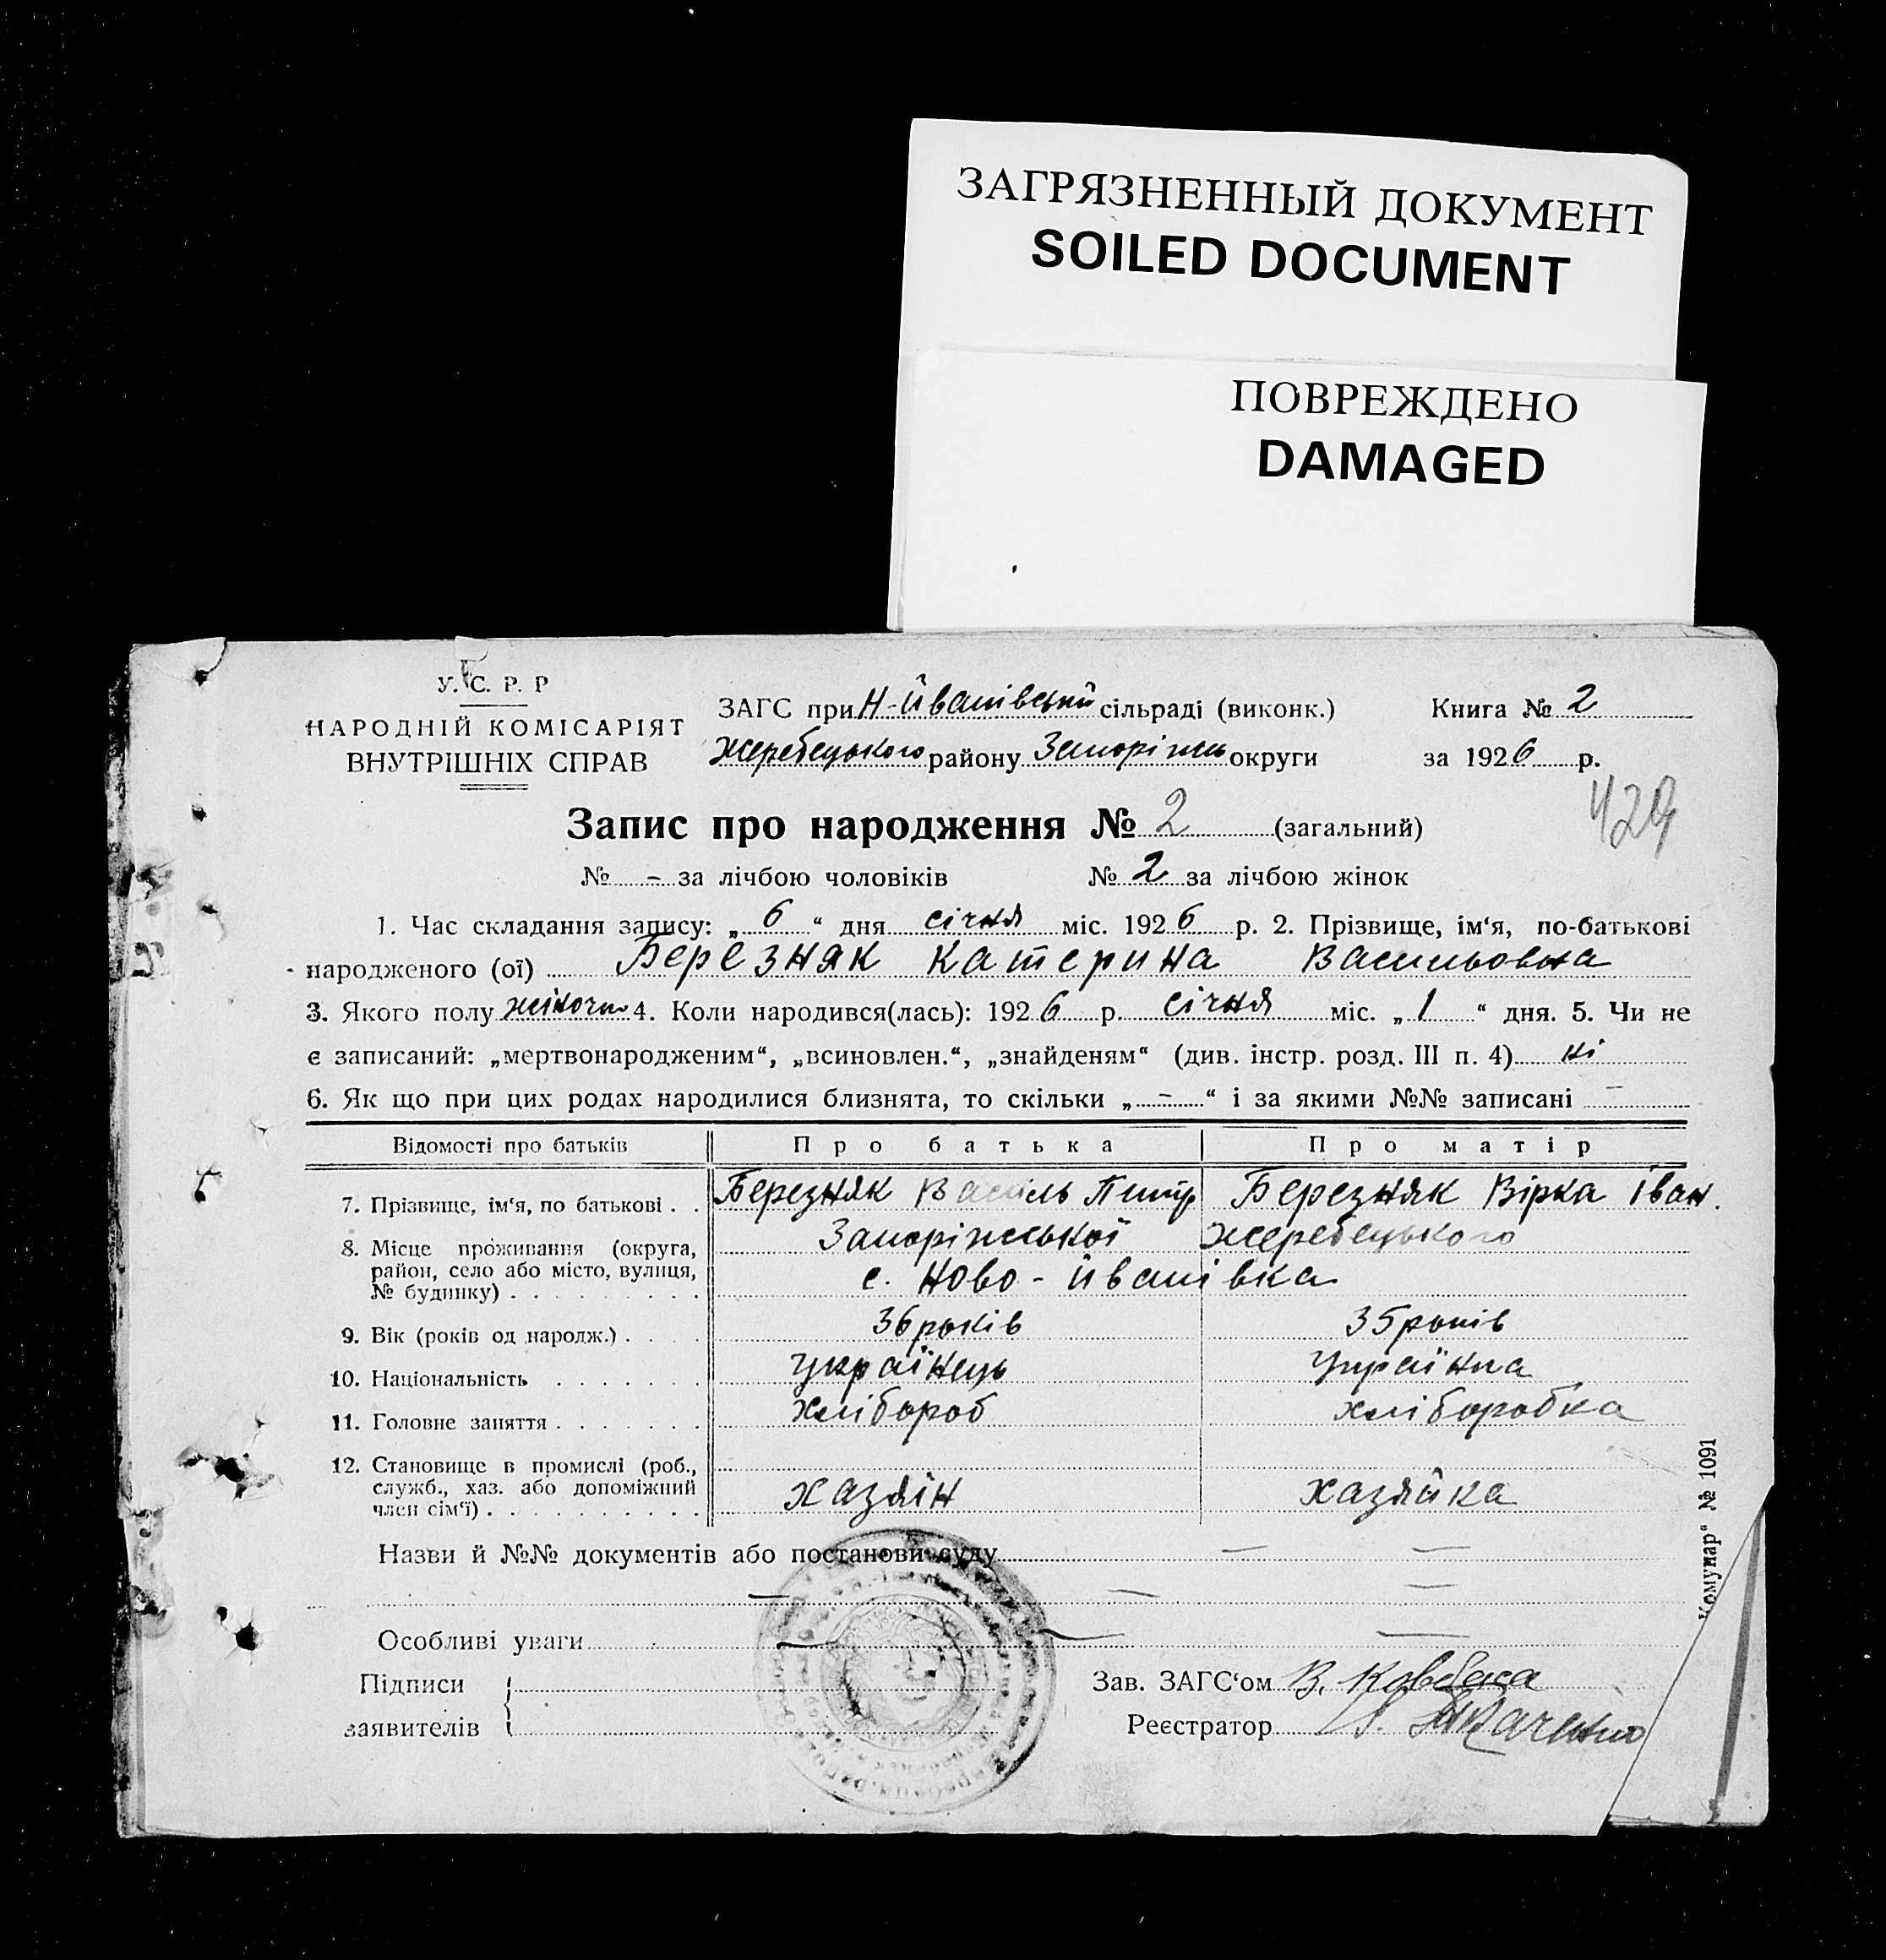 ЗАГРЯЗНЕННЫЙ ДОКУМЕНТ
SOILED DOCUMENT
ПОВРЕЖДЕНО
DAMAGED
У. С. Р. Р
НАРОДНІЙ КОМІСАРІЯТ
ВНУТРІШНІХ СПРАВ
ЗАГС при Н-Йванівській сільраді (виконк.)
Жеребецького району Запоріжь округи
Книга № 2
за 1926 р.
429
Запис про народження № 2 (загальний)
№ - за лічбою чоловіків № 2 за лічбою жінок
1. Час складання запису: „6“ дня січня міс. 1926 р. 2. Прізвище, ім‘я, по-батькові
народженого (ої) Березняк Катерина Васильовна
3. Якого полу жіночи 4. Коли народився(лась): 1926 р. січня міс. „1“ дня. 5. Чи не
є записаний: „мертвонародженим“, „всиновлен.“, „знайденям“ (див. інстр. розд. III п. 4) ні
6. Як що при цих родах народилися близнята, то скільки „-“ і за якими №№ записані -
Відомості про батьків Про батька Про матір
7. Прізвище, ім‘я, по батькові . . Березняк Василь Петр Березняк Вірка Іван.
8. Місце проживання (округа, Запоріжської Жеребецького
район, село або місто, вулиця, с. Ново-Йванівка
№ будинку) . . . . . . . . .
9. Вік (років од народж.) . . . . 36 років 35 років
10. Національність . . . . . . . українець українка
11. Головне заняття . . . . . . . хлібороб хліборобка
12. Становище в промислі (роб.,
служб., хаз. або допоміжний хазяїн хазяйка
член сім‘ї) . . . . . . . . . .
Назви й №№ документів або постанови суду — —
— — —
Особливі уваги — — —
Підписи
заявителів
Зав. ЗАГС‘ом В. Ковбаса
Реєстратор
Комунар“ № 1091